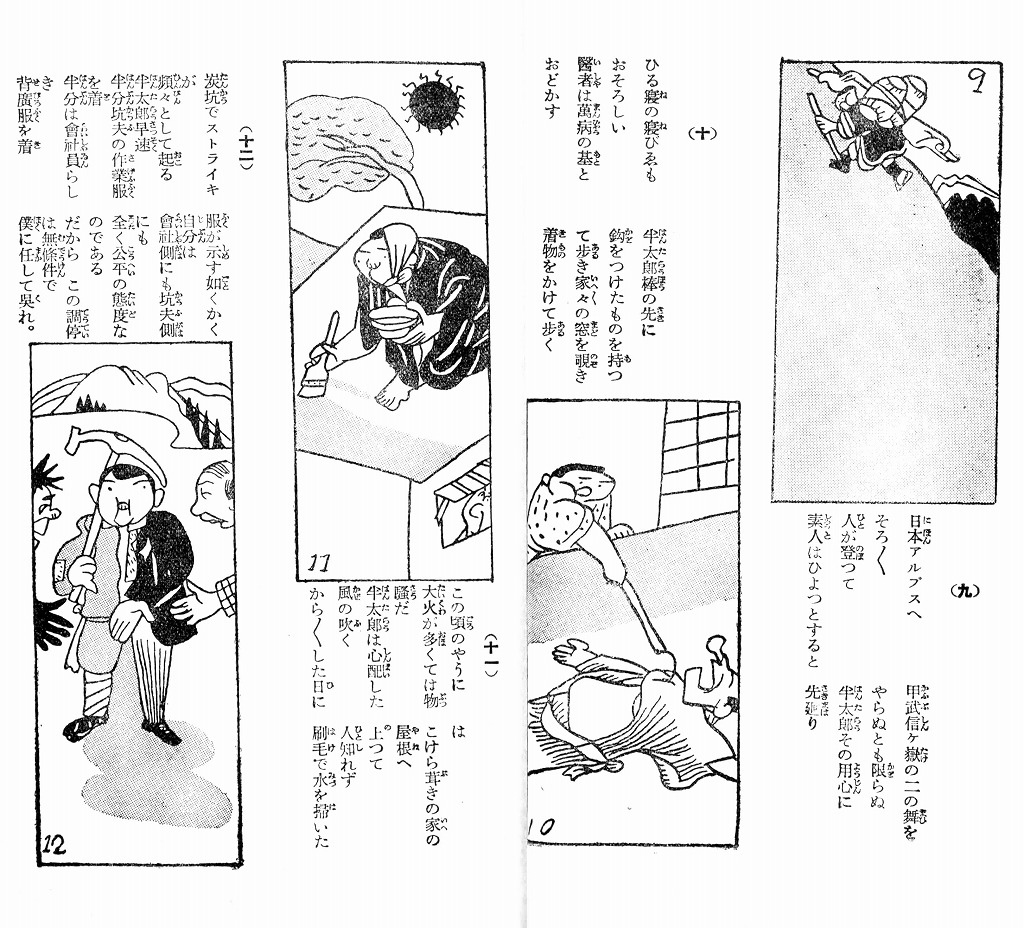 9
(九)
日本アルプスへ
そろ〱
人が登つて
素人はひよつとすると
甲武信ヶ嶽の二の舞を
やらぬとも限らぬ
半太郎その用心に
先廻り
(十)
ひる寢の寢びゑも
おそろしい
醫者は萬病の基と
おどかす
半太郎棒の先に
鈎をつけたものを持つ
て歩き家々の窓を覗き
着物をかけて歩く
10
11
(十一)
この頃のやうに
大火が多くては物
騒だ
半太郎は心配した
風の吹く
から〱した日に
は
こけら葺きの家の
屋根へ
上つて
人知れず
刷毛で水を掃いた
(十二)
炭坑でストライキ
が
頻々として起る
半太郎早速
半分坑夫の作業服
を着
半分は會社員らし
き
背廣服を着
服が示す如くかく
自分は
會社側にも坑夫側
にも
全く公平の態度な
のである
だから この調停
は無條件で
僕に任して呉れ。
12